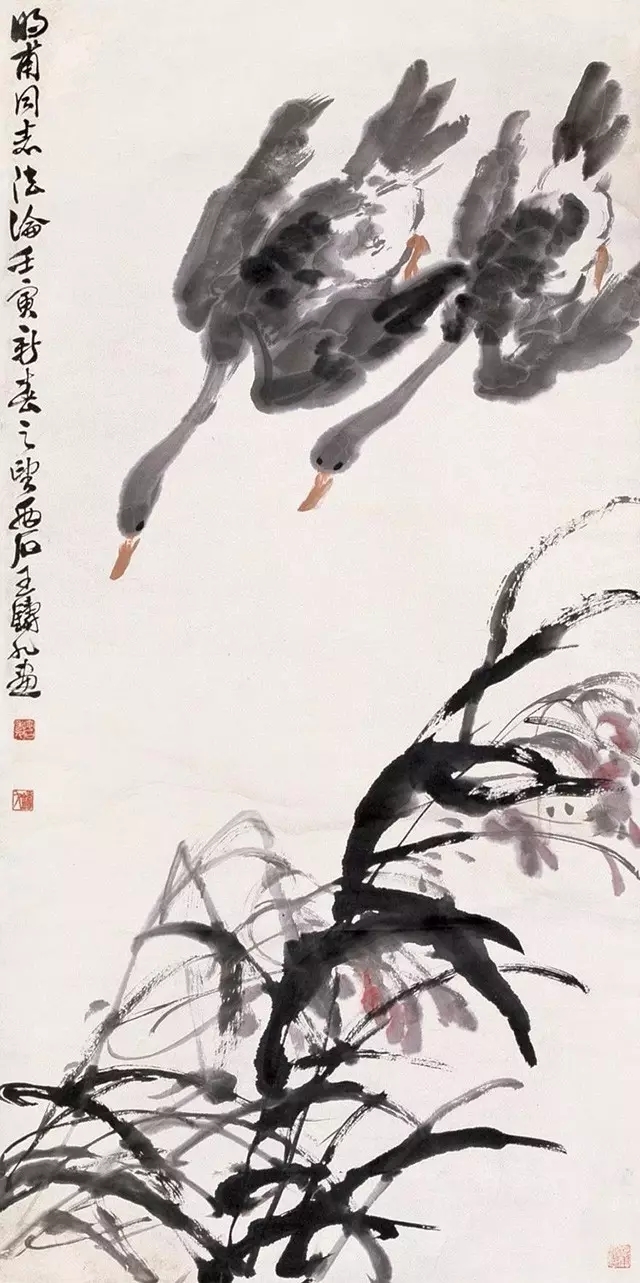 明甫同志法論壬寅新春之望西石王鑄九畫